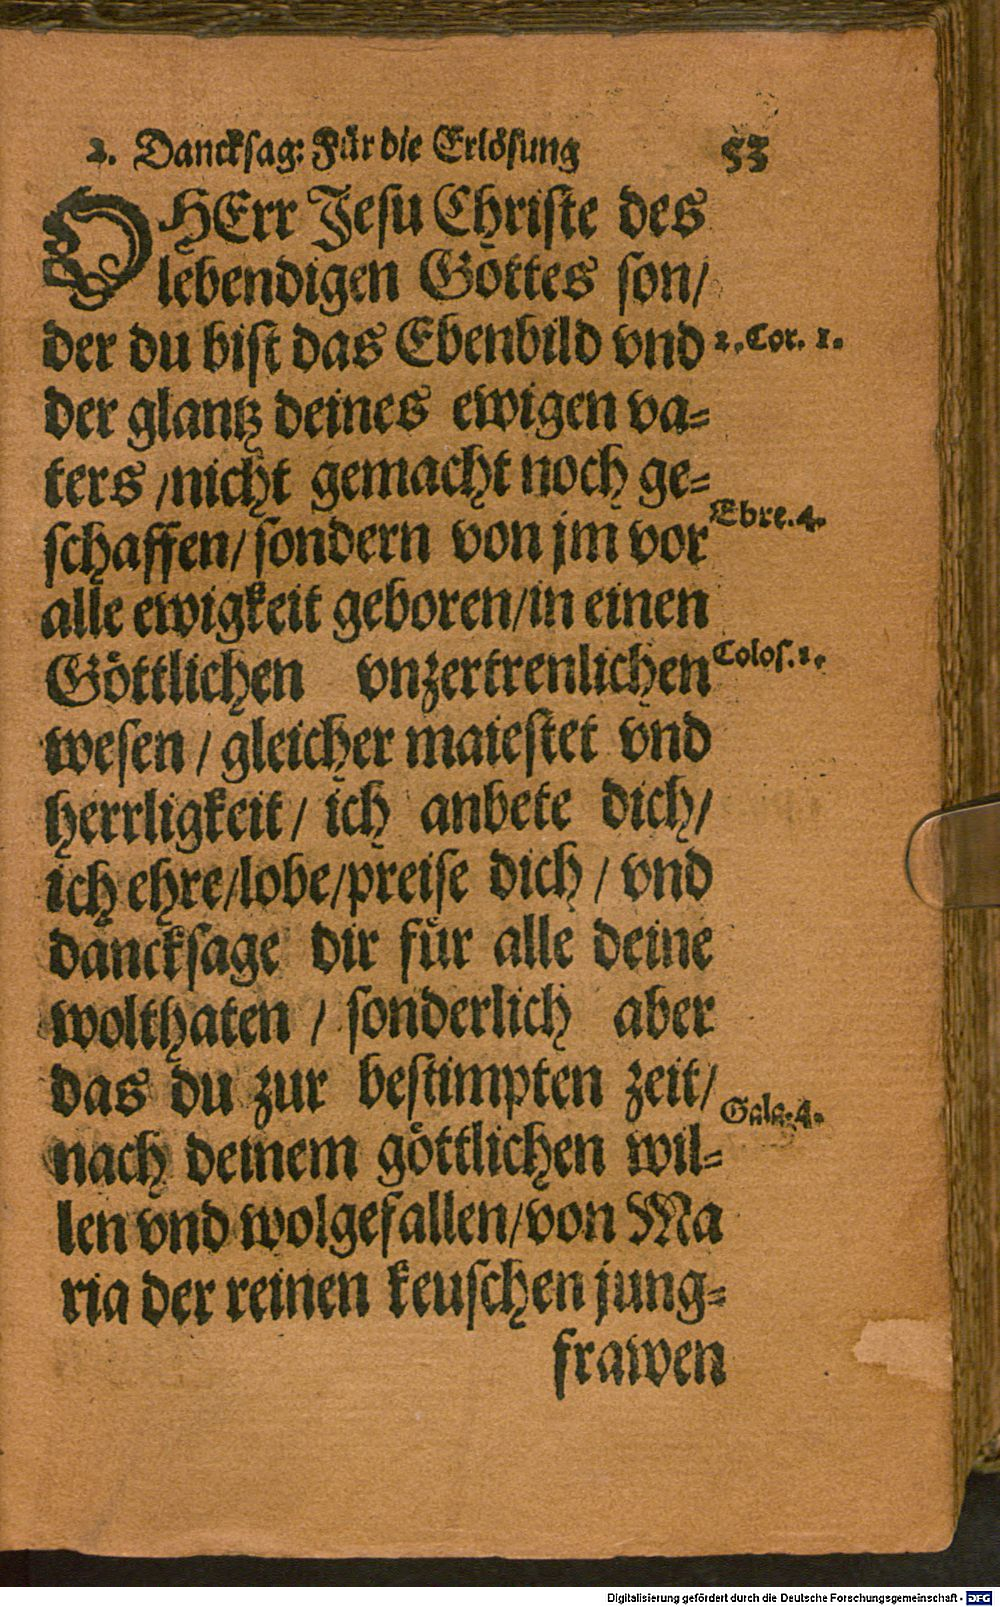 2. Dancksag: Für die Erlösung 53
O HErr Jesu Christe des
lebendigen Gottes son/
der du bist das Ebenbild vnd 2. Cor. 1.
der glantz deines ewigen va=
ters /nicht gemacht noch ge=
Ebre. 4.
schaffen/sondern von jm vor
alle ewigkeit geboren/in einen
Göttlichen vnzertrenlichen Colos. 1.
wesen / gleicher maiestet vnd
herrligkeit/ ich anbete dich/
ich ehre/lobe/preise dich / vnd
dancksage dir für alle deine
wolthaten / sonderlich aber
das du zur bestimpten zeit/
Gala. 4.
nach deinem göttlichen wil=
len vnd wolgefallen/von Ma
ria der reinen keuschen jung=
frawen
Digitalisierung gefördert durch die Deutsche Forschungsgemeinschaft - DFG